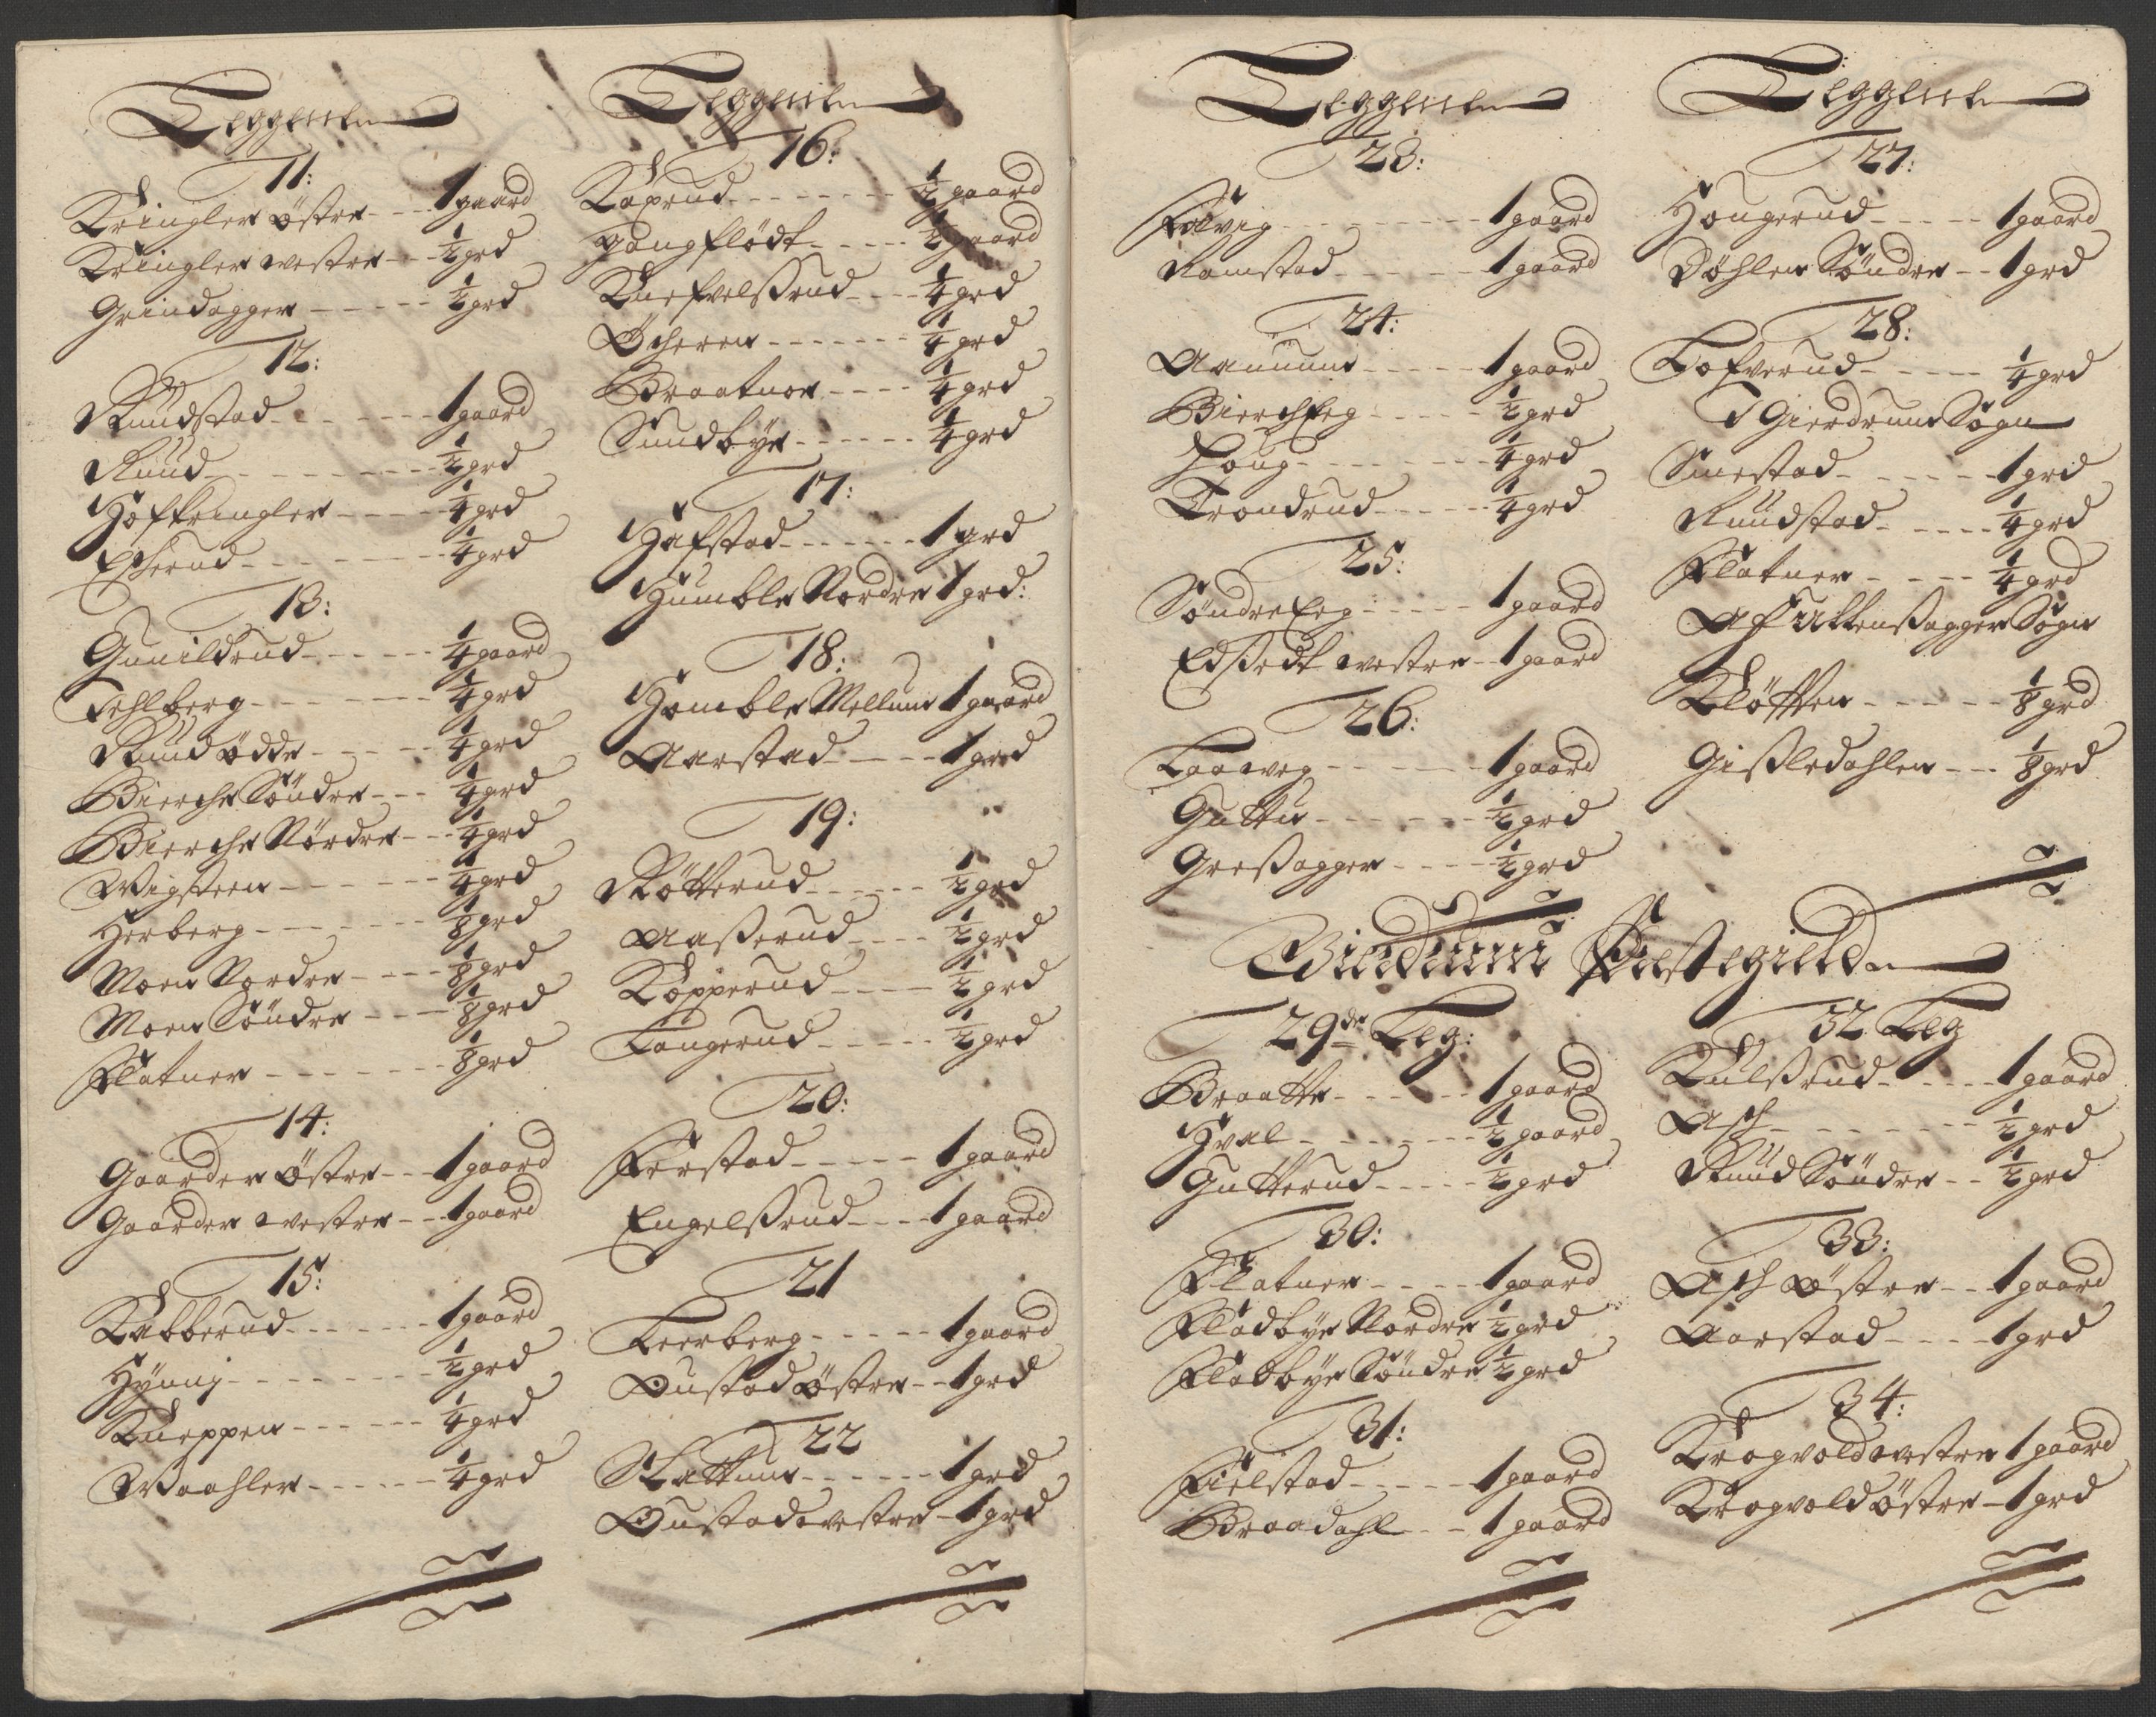 Leggene
11:
Kringler østre --- 1 gaard
Kringler westre -- ½ grd
Grindagger ----- ½ grd
12:
Ruudstad ----- 1 gaard
Ruud -------- ½ grd
Hoffkringler ---- ¼ grd
Escherud ------- ¼ grd
13:
Gunildrud ----- ¼ gaard
Fehlberg ------- ¼ grd
Ruud ødde ----- ¼ grd
Bierche Søndre --- ¼ grd
Bierche Nordre --- ¼ grd
Wigsteen ------ ¼ grd
Herberg ------ ⅛ grd
Moen Nordre ---- ⅛ grd
Moen Søndre --- ⅛ grd
Flatner ------- ⅛ grd
14:
Gaarder Østre --- 1 gaard
Gaarder westre -- 1 gaard
15:
Kabberud ------ 1 gaard
Hÿnnj -------- ½ grd
Kneppen ------ ¼ grd
Waahler ------ ¼ grd
Leggene
16:
Koxrud ------- ½ gaard
Houg flödt ---- ½ gaard
Knefvelßrud --- ¼ grd
Ocheren ------- ¼ grd
Braatner ---- ¼ grd
Sundbÿe ------ ¼ grd
17:
Hafstad ------ 1 grd
Humble Nordre 1 grd:
18:
Homble Mellum 1 gaard
Aarstad ---- 1 grd
19:
Røtterud ----- ½ grd
Aaßerud ---- ½ grd
Kopperud ---- ½ grd
Laugerud ----- ½ grd
20:
Ferstad ----- 1 gaard
Engelßrud --- 1 gaard
21
Leerberg ----- 1 gaard
Oustad østre -- 1 grd
22
Slattum ------ 1 grd
Oustad westre - 1 grd
Leggene
23:
Folvig ------- 1 gaard
Ramstad ----- 1 gaard
24:
Aanuum ----- 1 gaard
Bierch Eeg ---- ½ grd
Houg ------- ¼ grd
Trondrud ----- ¼ grd
25:
Søndre Eeg ----- 1 gaard
Edßedt westre -- 1 gaard
26:
Laaweg ------ 1 gaard
Guttu ------ ½ grd
Greßagger ---- ½ grd
Leggene
27:
Hougerud ----- 1 gaard
Døhlen Søndre -- 1 grd
28:
Lofverud ----- ¼ grd
I Gierdrum Sogn
Smestad ----- 1 grd
Ruudstad ---- ¼ grd
Flatner ---- ¼ grd
Af Ullensagger Sogn
Kløfften ----- ⅛ grd
Gißledahlen --- ⅛ grd
29de Leg:
Braatte ------ 1 gaard
Hval ------ ½ gaard
Gutterud ---- ½ grd
30:
Flatner ---- 1 gaard
Fladbÿe Nordre ½ grd
Fladbÿe Søndre ½ grd
31:
Fielstad ----- 1 gaard
Braadahl --- 1 gaard
32. Leg
Kulßrud ---- 1 gaard
Asch ------- ½ grd
Ruud Søndre -- ½ grd
33:
Asch østre -- 1 gaard
Aarstad ---- 1 grd
34:
Krogvold westre 1 gaard
Krogvold østre - 1 grd